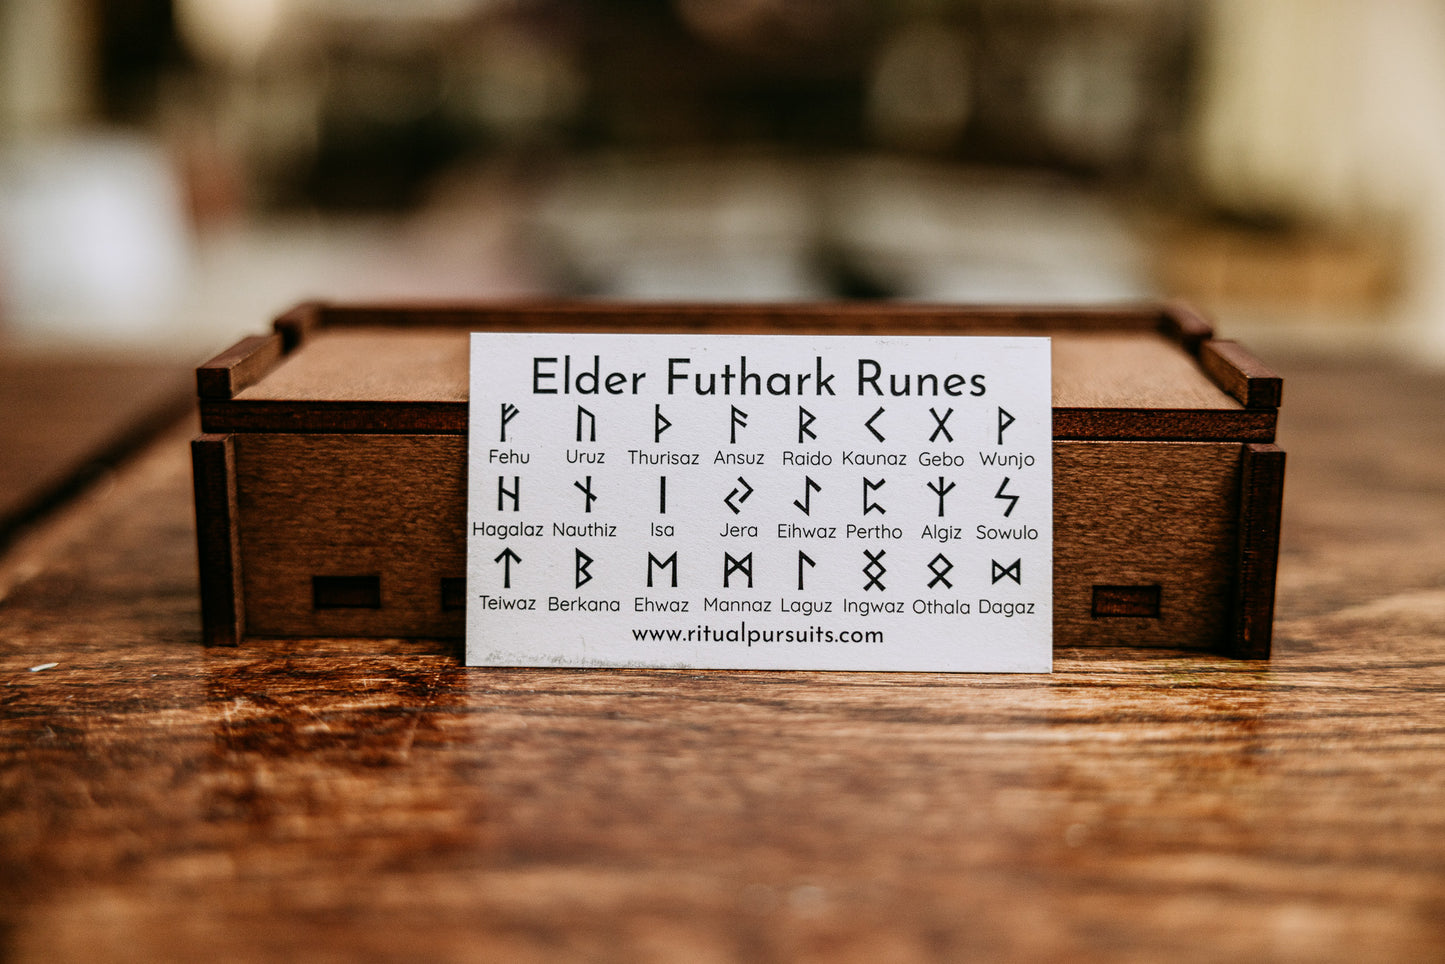 Elder Futhark Runes
ᚠ ᚢ ᚦ ᚨ ᚱ ᚲ ᚷ ᚹ
Fehu Uruz Thurisaz Ansuz Raido Kaunaz Gebo Wunjo
ᚺ ᚾ ᛁ ᛃ ᛇ ᛈ ᛉ ᛊ
Hagalaz Nauthiz Isa Jera Eihwaz Pertho Algiz Sowulo
ᛏ ᛒ ᛖ ᛗ ᛚ ᛝ ᛟ ᛞ
Teiwaz Berkana Ehwaz Mannaz Laguz Ingwaz Othala Dagaz
www.ritualpursuits.com